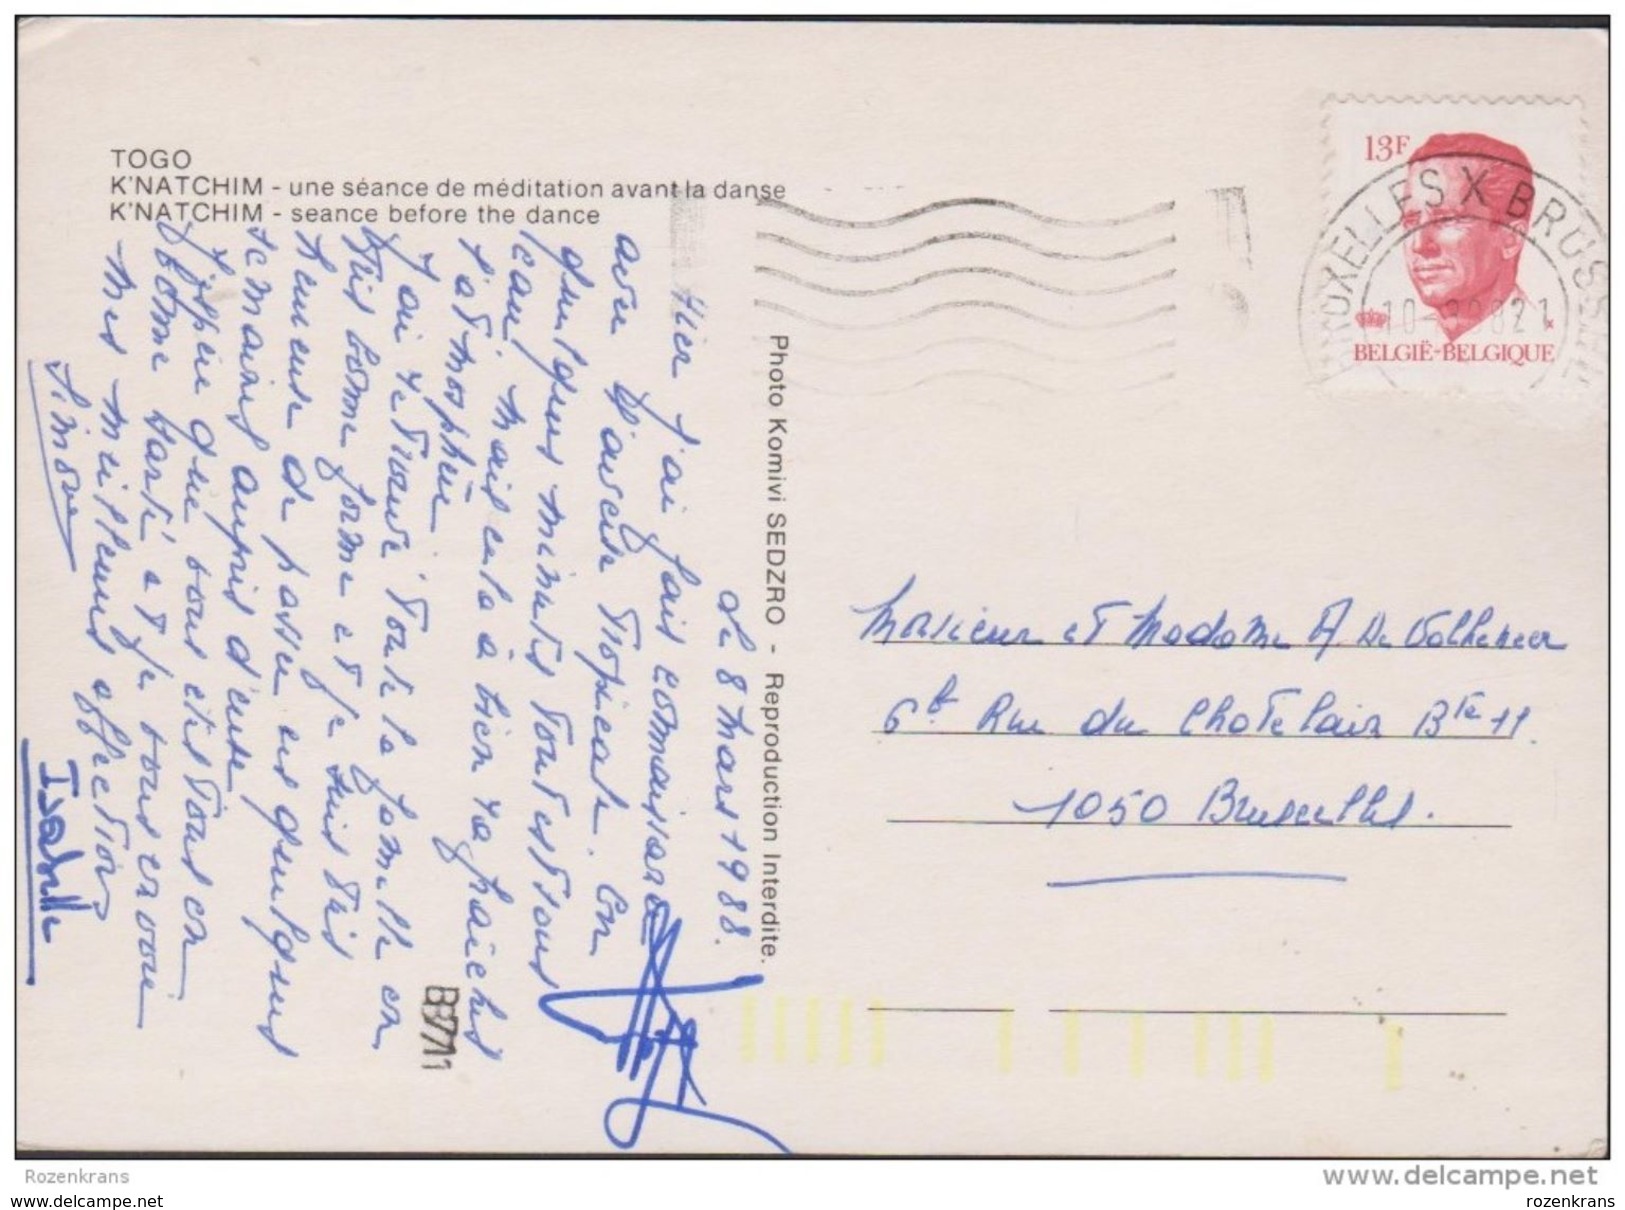 TOGO
K'NATCHIM - une séance de méditation avant la danse
K'NATCHIM - seance before the dance
Photo Komivi SEDZRO - Reproduction Interdite.
13F
BELGIË-BELGIQUE
BRUXELLES X BRUSSEL
Le 8 Mars 1988.
Hier j'ai fait connaissance
avec d'averse Tropicale. En
quelques minutes tout est sous
l'eau, mais cela a bien rafraîchit
l'atmosphère
J'ai retrouvé toute la famille en
très bonne forme et je suis très
heureuse de passer ces quelques
semaines auprès d'eux,
J'espère que vous êtes tous en
bonne santé et je vous envoie
mes meilleurs affections
Simone
Isabelle
B8711
Monsieur et Madame A De
6b Rue du Chatelain Bte 11
1050 Bruxelles.
Rozenkrans
www.delcampe.net
www.delcampe.com
rozenkrans